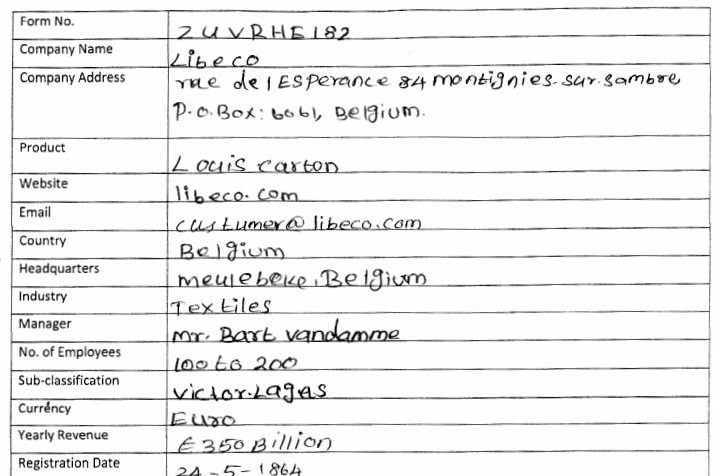 Form No. ZUVRHE182
Company Name Libeco
Company Address rue de l ESperance 84 montignies-sur-sambre,
P.O.Box: 6061, Belgium.
Product Louis carton
Website libeco.com
Email custumer@libeco.com
Country Belgium
Headquarters meulebeke, Belgium
Industry Textiles
Manager mr. Bart vandamme
No. of Employees 100 to 200
Sub-classification victor.Lagas
Currency Euro
Yearly Revenue € 350 Billion
Registration Date 24-5-1864